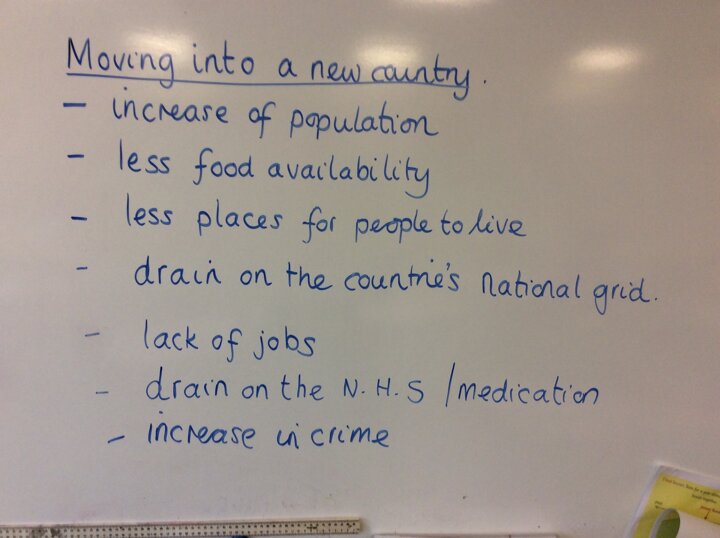 Moving into a new country.
- increase of population
- less food availability
- less places for people to live
- drain on the countrie's national grid.
- lack of jobs
- drain on the N.H.S /medication
- increase in crime